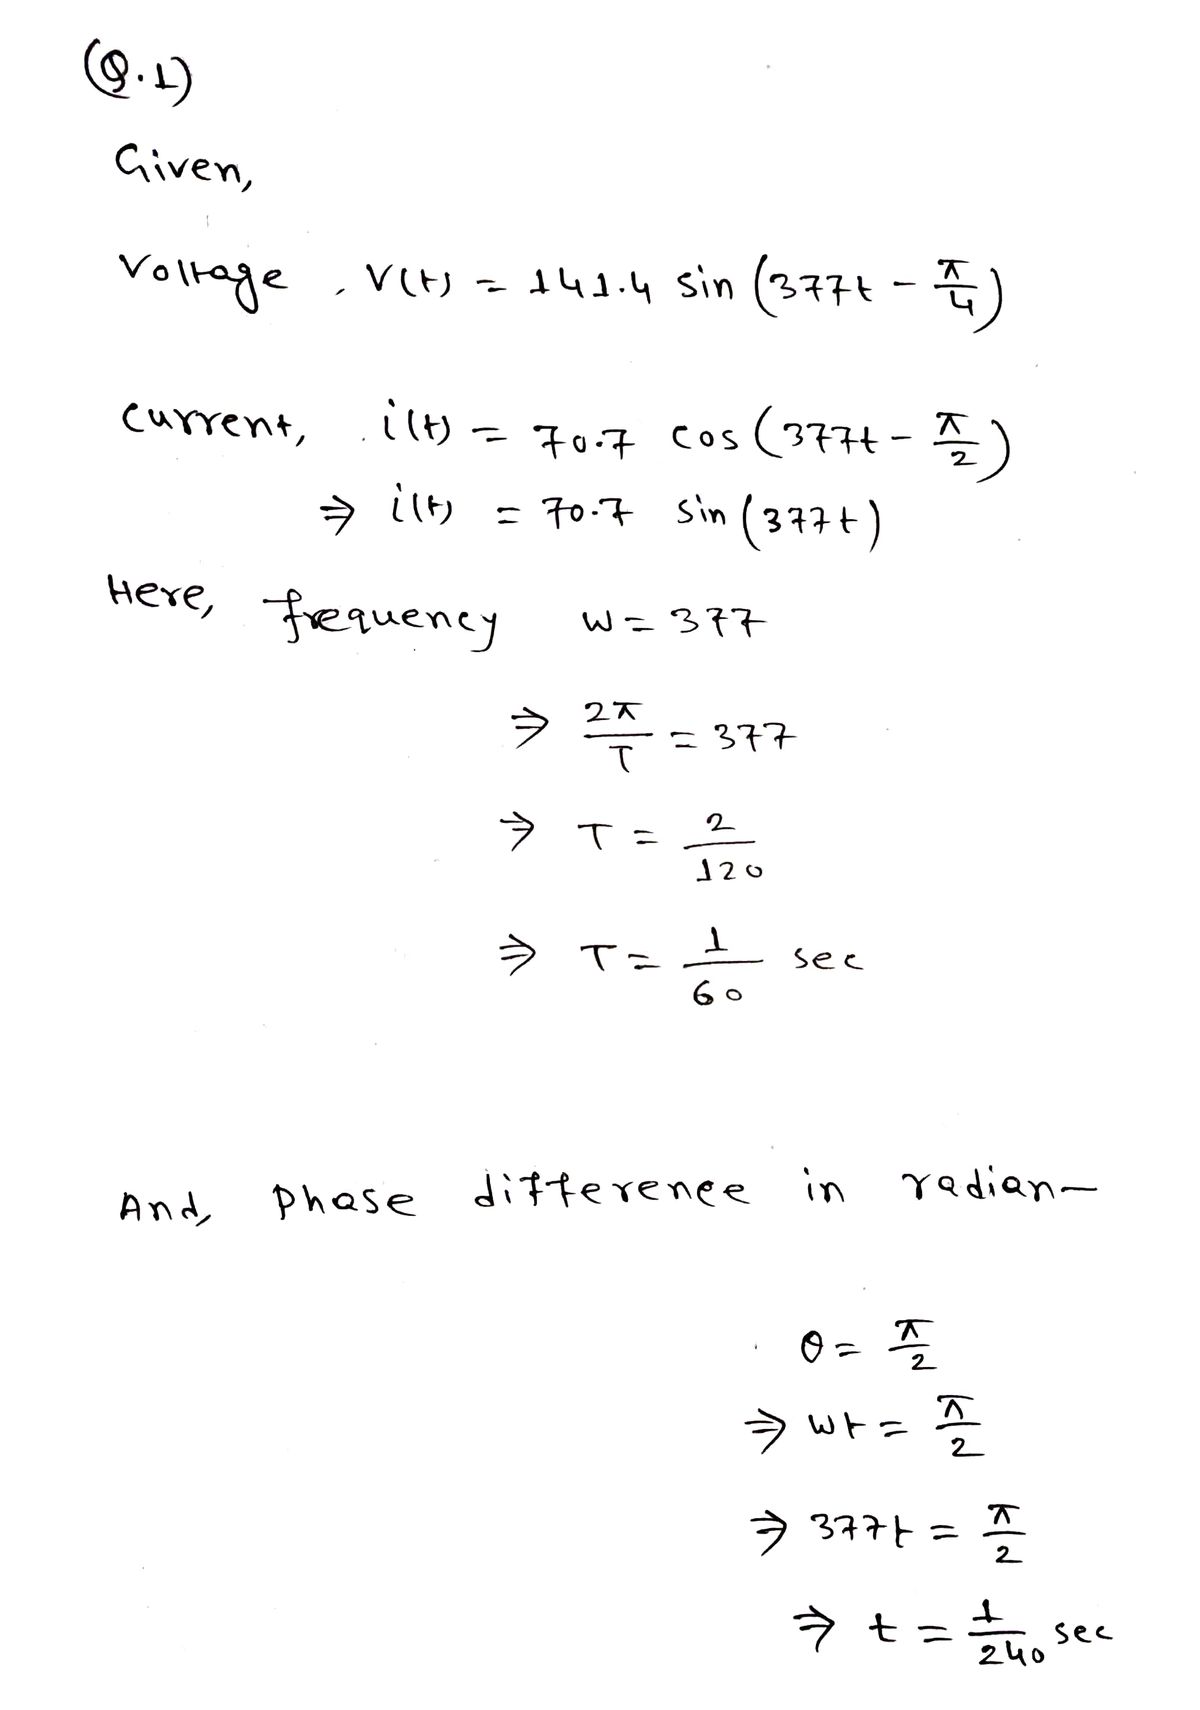 (Q.1)
Given,
Voltage, V(t) = 141.4 sin (377t - π/4)
current, i(t) = 70.7 cos (377t - π/2)
⇒ i(t) = 70.7 sin (377t)
Here, frequency w = 377
⇒ 2π/T = 377
⇒ T = 2/120
⇒ T = 1/60 sec
And, Phase difference in radian-
θ = π/2
⇒ wt = π/2
⇒ 377t = π/2
⇒ t = 1/240 sec